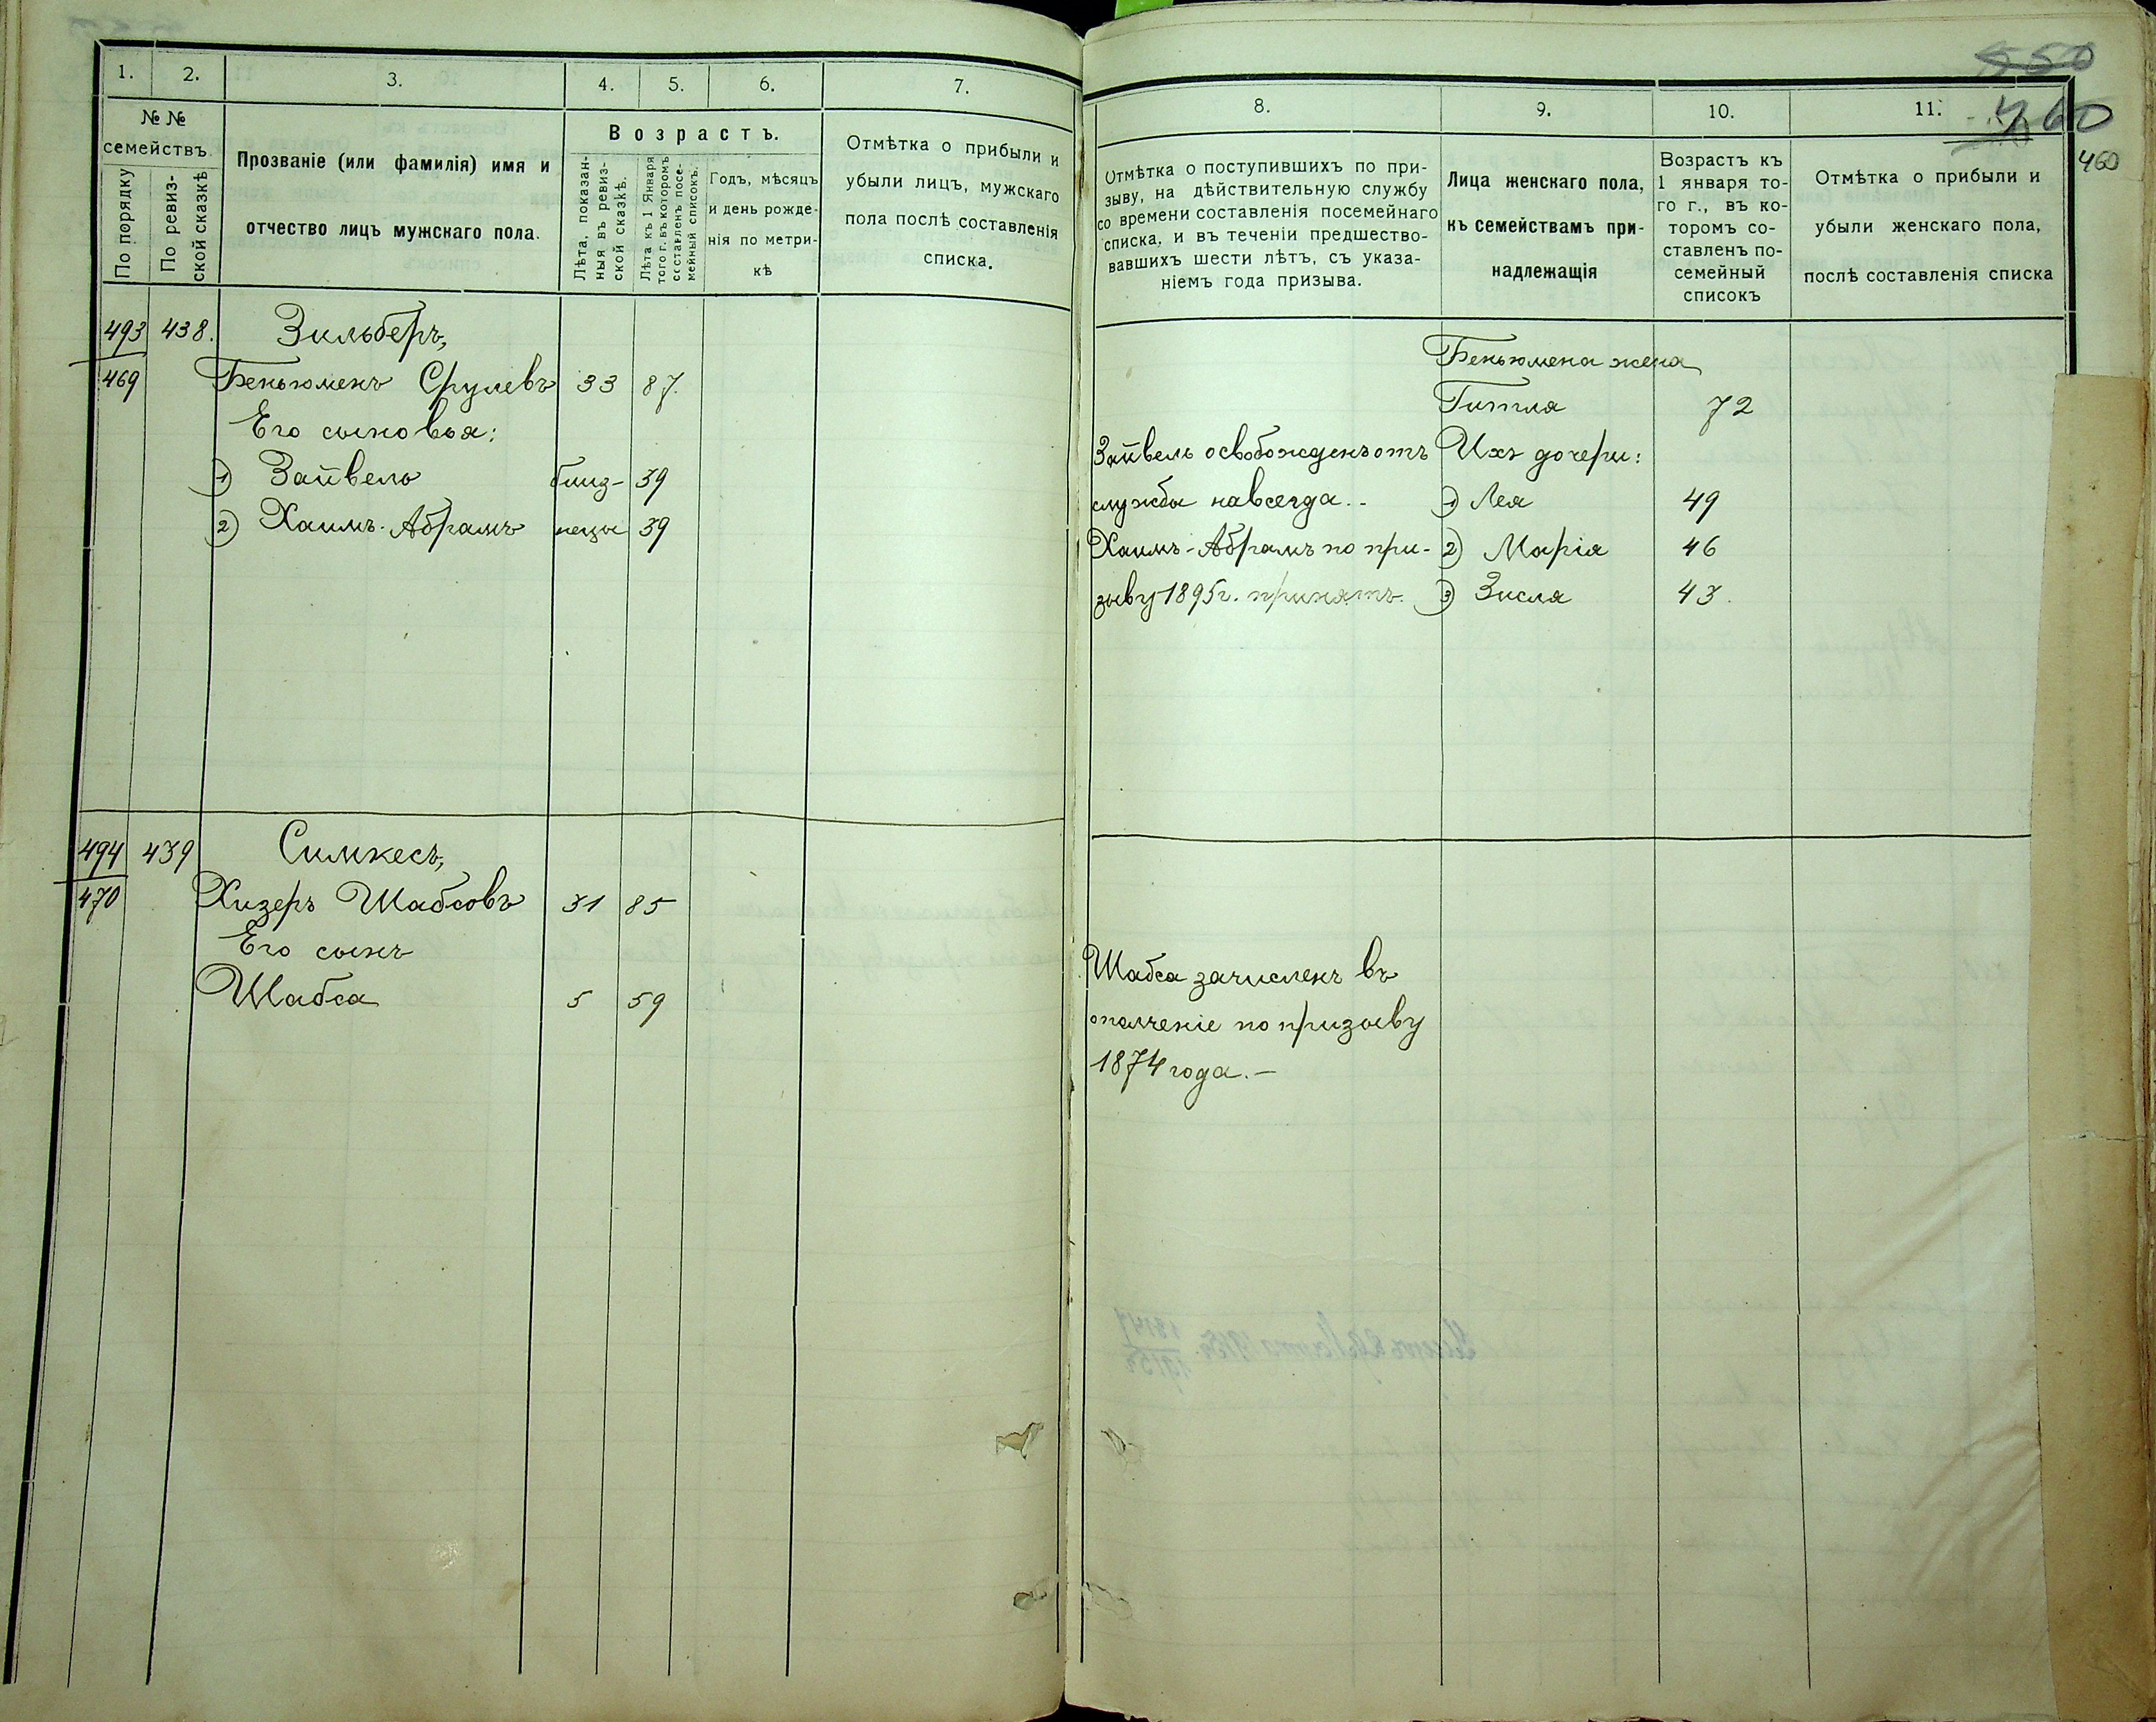 1.
2.
3.
4.
5.
6.
7.
№ №
семействъ.
По порядку
По ревиз-
ской сказкѣ
Прозваніе (или фамилія) имя и
отчество лицъ мужскаго пола.
Возрастъ.
Лѣта, показан-
ныя въ ревиз-
ской сказкѣ.
Лѣта къ 1 Января
того г. въ которомъ
составленъ посе-
мейный списокъ.
Годъ, мѣсяцъ
и день рожде-
нія по метри-
кѣ
Отмѣтка о прибыли и
убыли лицъ, мужскаго
пола послѣ составленія
списка.
493 438. Зильберъ,
469 Беньюменъ Срулевъ 33 87.
Его сыновья:
1) Зайвель близ- 39
2) Хаимъ-Абрамъ нецы 39
494 439 Симкесъ,
470 Хизеръ Шабсовъ 31 85
Его сынъ
Шабса 5 59
550
460
460
8.
9.
10.
11.
Отмѣтка о поступившихъ по при-
зыву, на дѣйствительную службу
со времени составленія посемейнаго
списка, и въ теченіи предшество-
вавшихъ шести лѣтъ, съ указа-
ніемъ года призыва.
Лица женскаго пола,
къ семействамъ при-
надлежащія
Возрастъ къ
1 января то-
го г., въ ко-
торомъ со-
ставленъ по-
семейный
списокъ
Отмѣтка о прибыли и
убыли женскаго пола,
послѣ составленія списка
Беньюмена жена
Гитля 72
Зайвель освобожденъ отъ Ихъ дочери:
службы навсегда.- 1) Лея 49
Хаимъ-Абрамъ по при- 2) Марія 46
зыву 1895 г. принятъ. 3) Зисля 43.
Шабса зачисленъ въ
ополченіе по призыву
1874 года.-